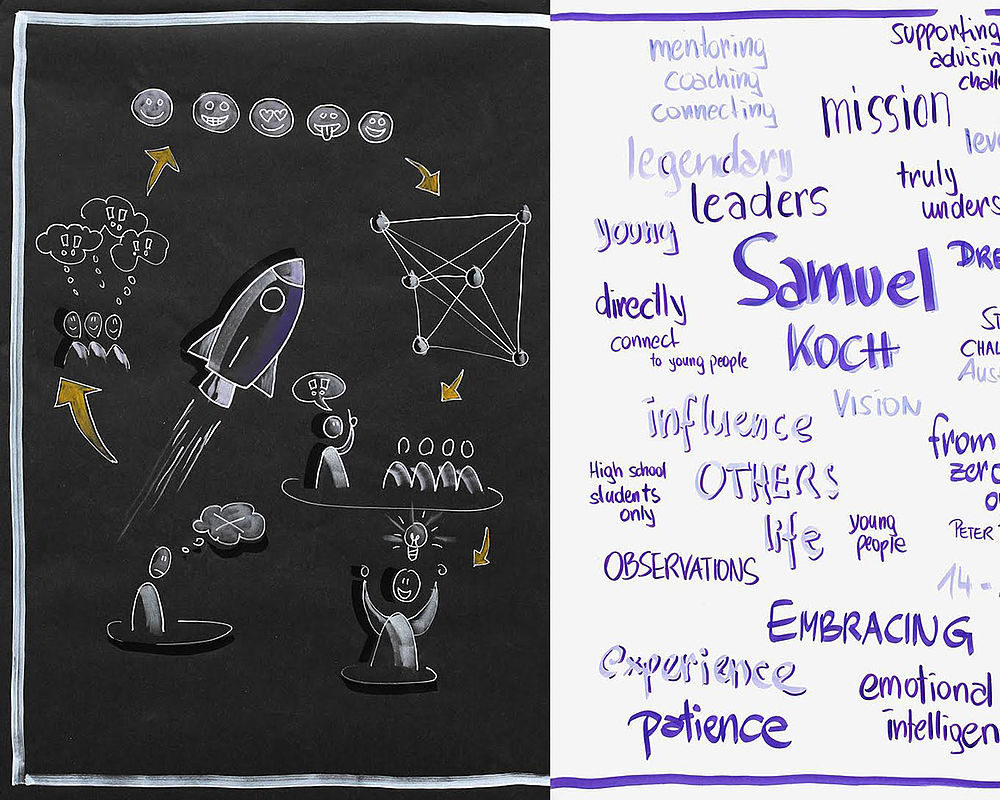 mentoring
coaching
connecting
supporting
advisin
mission
legendary
leaders
truly
unders
young
Samuel
directly
connect
to young people
KOCH
VISION
influence
from
zero
High school
students
only
OTHERS
life
young
people
PETER
OBSERVATIONS
14 -
EMBRACING
experience
patience
emotional
intelligen